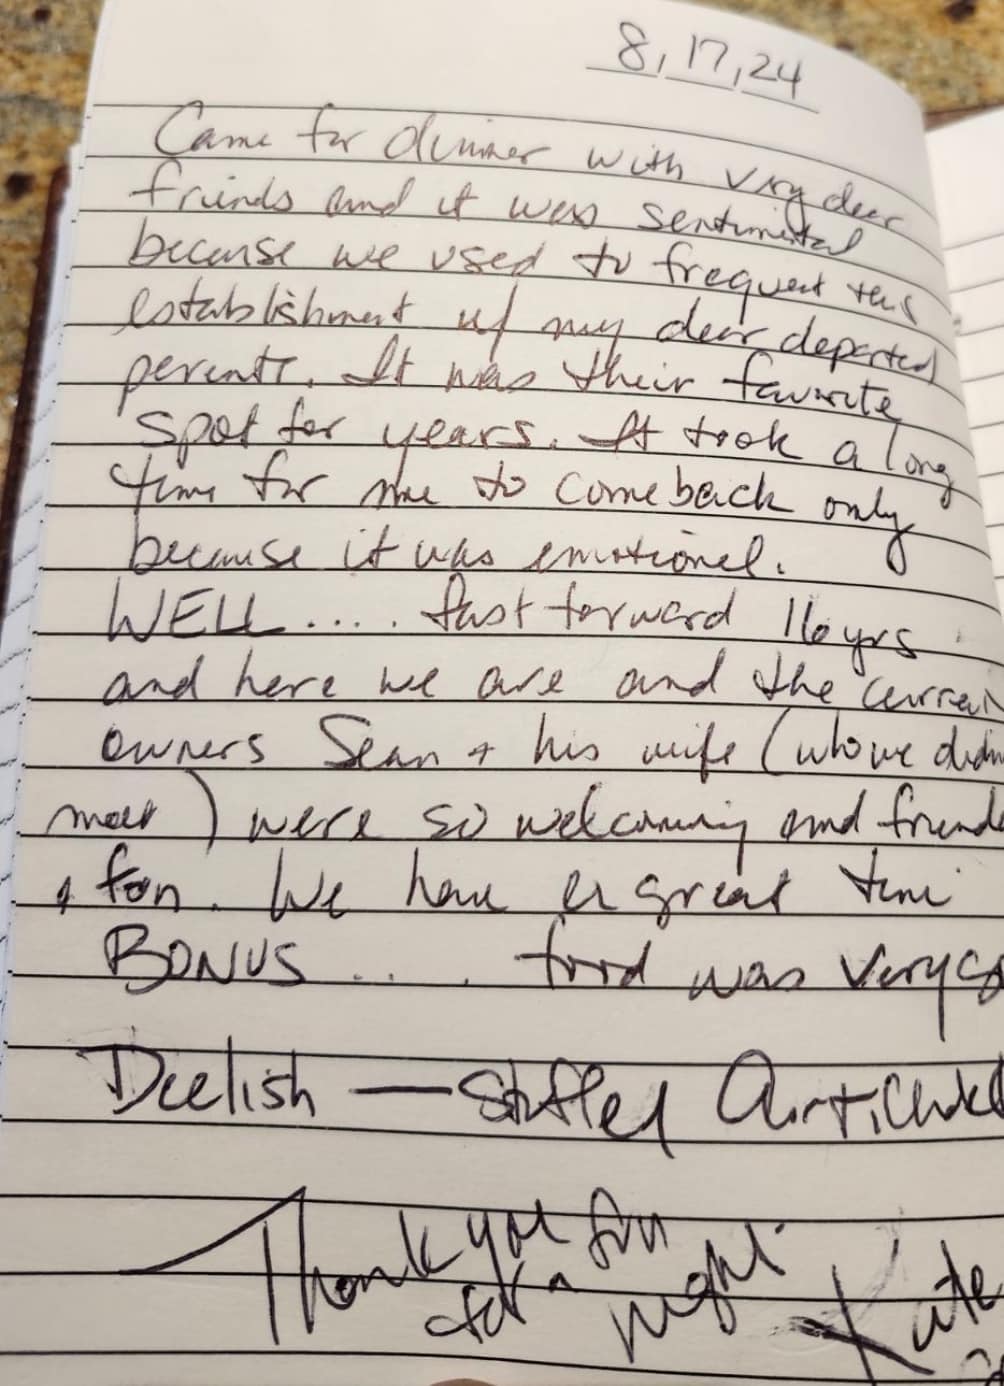 8, 17, 24
Came for dinner with very dear
friends and it was sentimental
because we used to frequent this
establishment w/ my dear departed
parents. It was their favorite
spot for years. It took a long
time for me to come back only
because it was emotional.
WELL..... fast forward 16 yrs
and here we are and the curren
owners Sean + his wife (who we didn
meet) were so welcoming and friend
+ fun. We have a great time
BONUS .... food was very
Deelish — Stuffed
Thank you
for a night.
Kate